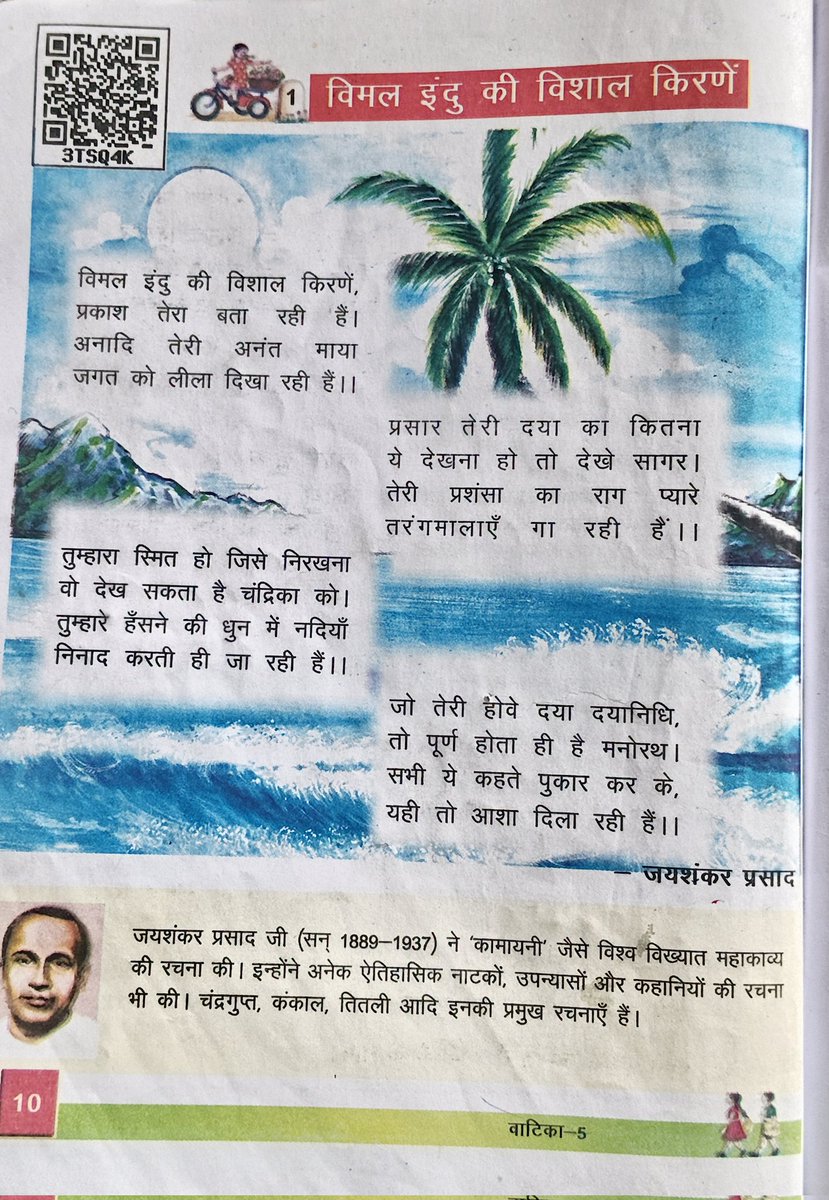 3TSQ4K
1
विमल इंदु की विशाल किरणें
विमल इंदु की विशाल किरणें,
प्रकाश तेरा बता रही हैं।
अनादि तेरी अनंत माया
जगत को लीला दिखा रही हैं।।
प्रसार तेरी दया का कितना
ये देखना हो तो देखे सागर।
तेरी प्रशंसा का राग प्यारे
तरंगमालाएँ गा रही हैं।।
तुम्हारा स्मित हो जिसे निरखना
वो देख सकता है चंद्रिका को।
तुम्हारे हँसने की धुन में नदियाँ
निनाद करती ही जा रही हैं।।
जो तेरी होवे दया दयानिधि,
तो पूर्ण होता ही है मनोरथ।
सभी ये कहते पुकार कर के,
यही तो आशा दिला रही हैं।।
– जयशंकर प्रसाद
जयशंकर प्रसाद जी (सन् 1889–1937) ने 'कामायनी' जैसे विश्व विख्यात महाकाव्य
की रचना की। इन्होंने अनेक ऐतिहासिक नाटकों, उपन्यासों और कहानियों की रचना
भी की। चंद्रगुप्त, कंकाल, तितली आदि इनकी प्रमुख रचनाएँ हैं।
10
वाटिका–5